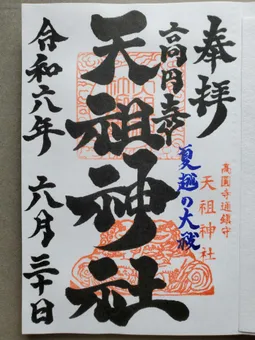 奉拝
高円寺
天祖神社
夏越の大祓
高圓寺邊鎮守
天祖神社
令和六年 六月三十日